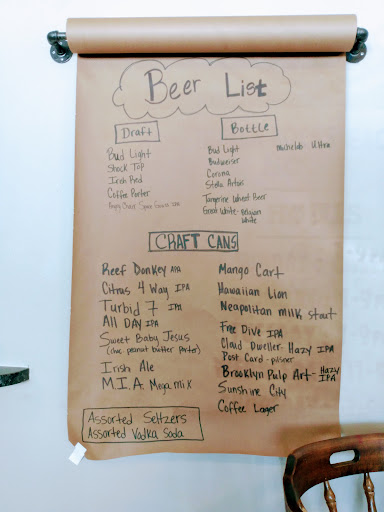 Beer List
Draft
Bud Light
Shock Top
Irish Red
Coffee Porter
Space
IPA
Bottle
Bud Light
Budweiser
Corona
Stella Artois
Tangerine Wheat Beer
Great White - Belgian
White
Michelob Ultra
CRAFT CANS
Reef Donkey APA
Citrus 4 Way IPA
Turbid 7 IPA
All DAY IPA
Sweet Baby Jesus
(choc peanut butter porter)
Irish Ale
M.I.A. Mega mix
Mango Cart
Hawaiian Lion
Neapolitan milk stout
Free Dive IPA
Cloud Dweller - Hazy IPA
Post Card - pilsner
Brooklyn Pulp Art - Hazy
IPA
Sunshine City
Coffee Lager
Assorted Seltzers
Assorted Vodka Soda